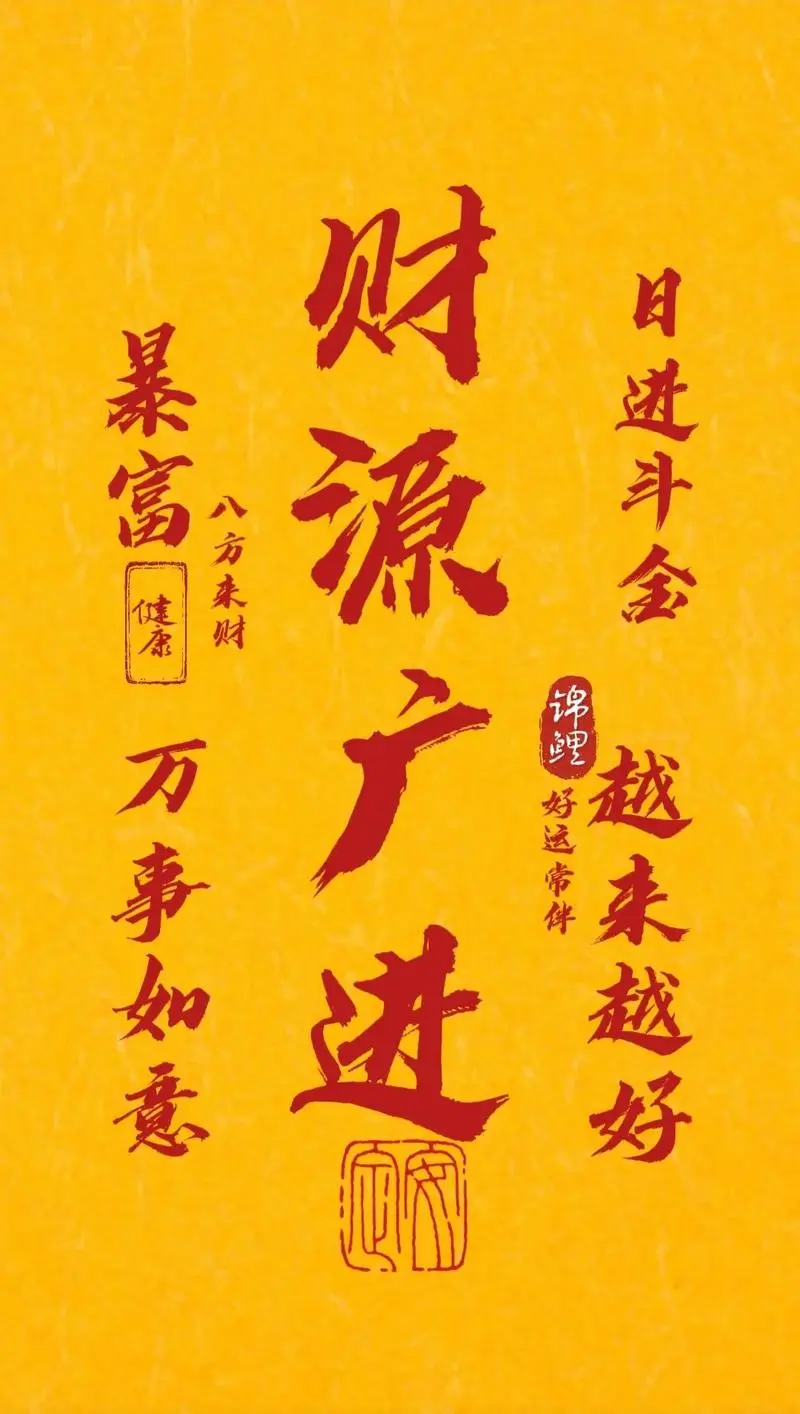 财源广进
日进斗金
越来越好
锦鲤
好运常伴
暴富
健康
八方来财
万事如意
安定